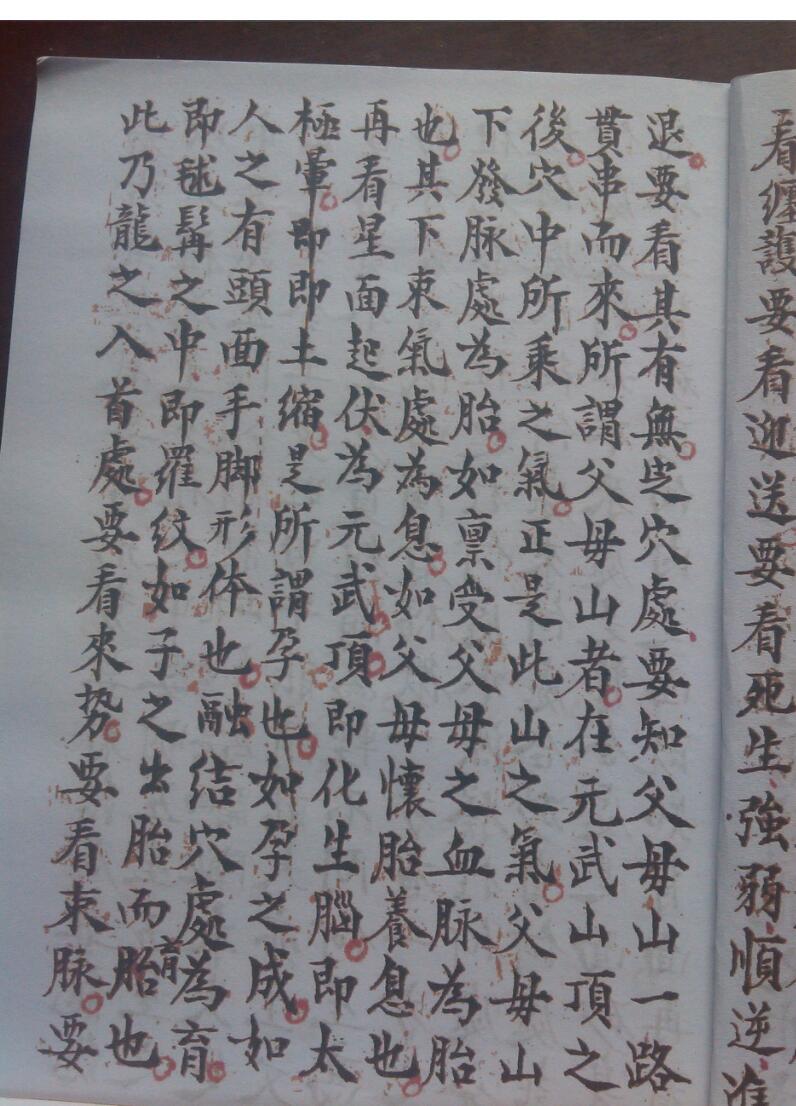 看纏護要看迎送要看死生強弱順逆進
退要看其有無定穴處要知父母山一路
貫串而來所謂父母山者在元武山頂之
後穴中所乘之氣正是此山之氣父母山
下發脉處為胎如禀受父母之血脉為胎
也其下束氣處為息如父母懷胎養息也
再看星面起伏為元武頂即化生腦即太
極暈即即土縮是所謂孕也如孕之成如
人之有頭面手脚形体也融結穴處為育
即毬髯之中即羅紋如子之出胎而胎育也
此乃龍之入首處要看來势要看束脉要